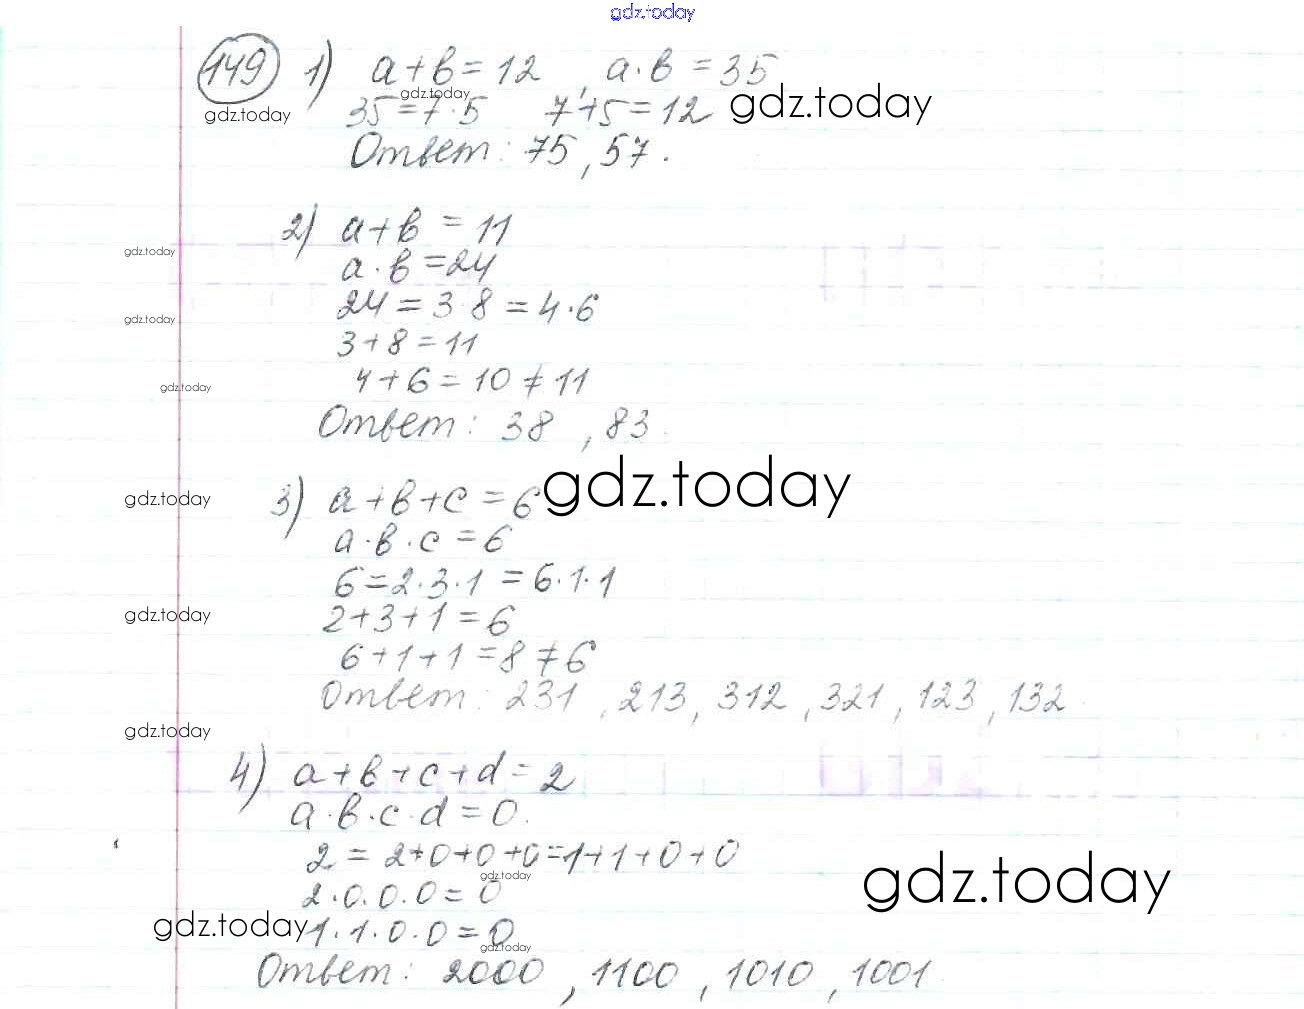 gdz.today
149 1) a+b=12, a·b=35
gdz.today
gdz.today
gdz.today
35=7·5 7+5=12
Ответ: 75, 57.
2) a+b=11
gdz.today
a·b=24
24=3·8=4·6
gdz.today
3+8=11
4+6=10≠11
gdz.today
Ответ: 38, 83.
gdz.today
3) a+b+c=6
gdz.today
a·b·c=6
6=2·3·1=6·1·1
gdz.today
2+3+1=6
6+1+1=8≠6
Ответ: 231, 213, 312, 321, 123, 132.
gdz.today
4) a+b+c+d=2
a·b·c·d=0.
2=2+0+0+0=1+1+0+0
gdz.today
gdz.today
2·0·0·0=0
gdz.today
1·1·0·0=0
gdz.today
Ответ: 2000, 1100, 1010, 1001.